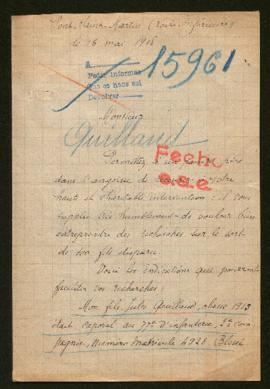 Pont Saint-Martin (Loire Inférieure)
le 18 mai 1915
15961
Petit informes
Monsieur
Quillaud
Fecho
Permettez à un père
dans l'angoisse de votre
haute et charitable intervention : il vous
supplie très humblement de vouloir bien
entreprendre des recherches sur le sort
de son fils disparu.
Voici les indications qui peuvent
faciliter ces recherches :
Mon fils Jules Quillaud, classe 1913
était caporal au d'infanterie, 5e Com
pagnie, Numéro Matricule 4928 Blessé